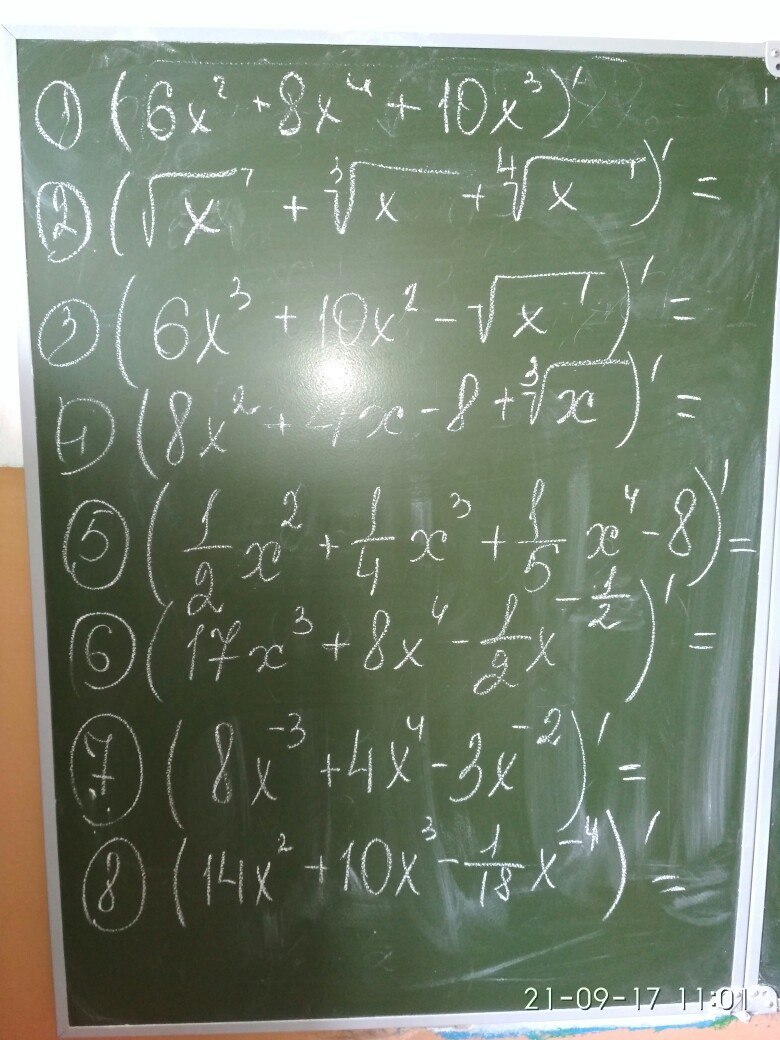 ① (6x² + 8x⁴ + 10x³)'
② (√x + ∛x + ∜x)' =
③ (6x³ + 10x² - √x)' =
④ (8x² + 4x - 8 + ∛x)' =
⑤ (1/2 x² + 1/4 x³ + 1/5 x⁴ - 8)' =
⑥ (17x³ + 8x⁴ - 1/2 x^(-1/2))' =
⑦ (8x⁻³ + 4x⁴ - 3x⁻²)' =
⑧ (14x² + 10x³ - 1/18 x⁻⁴)' =
21-09-17 11:01